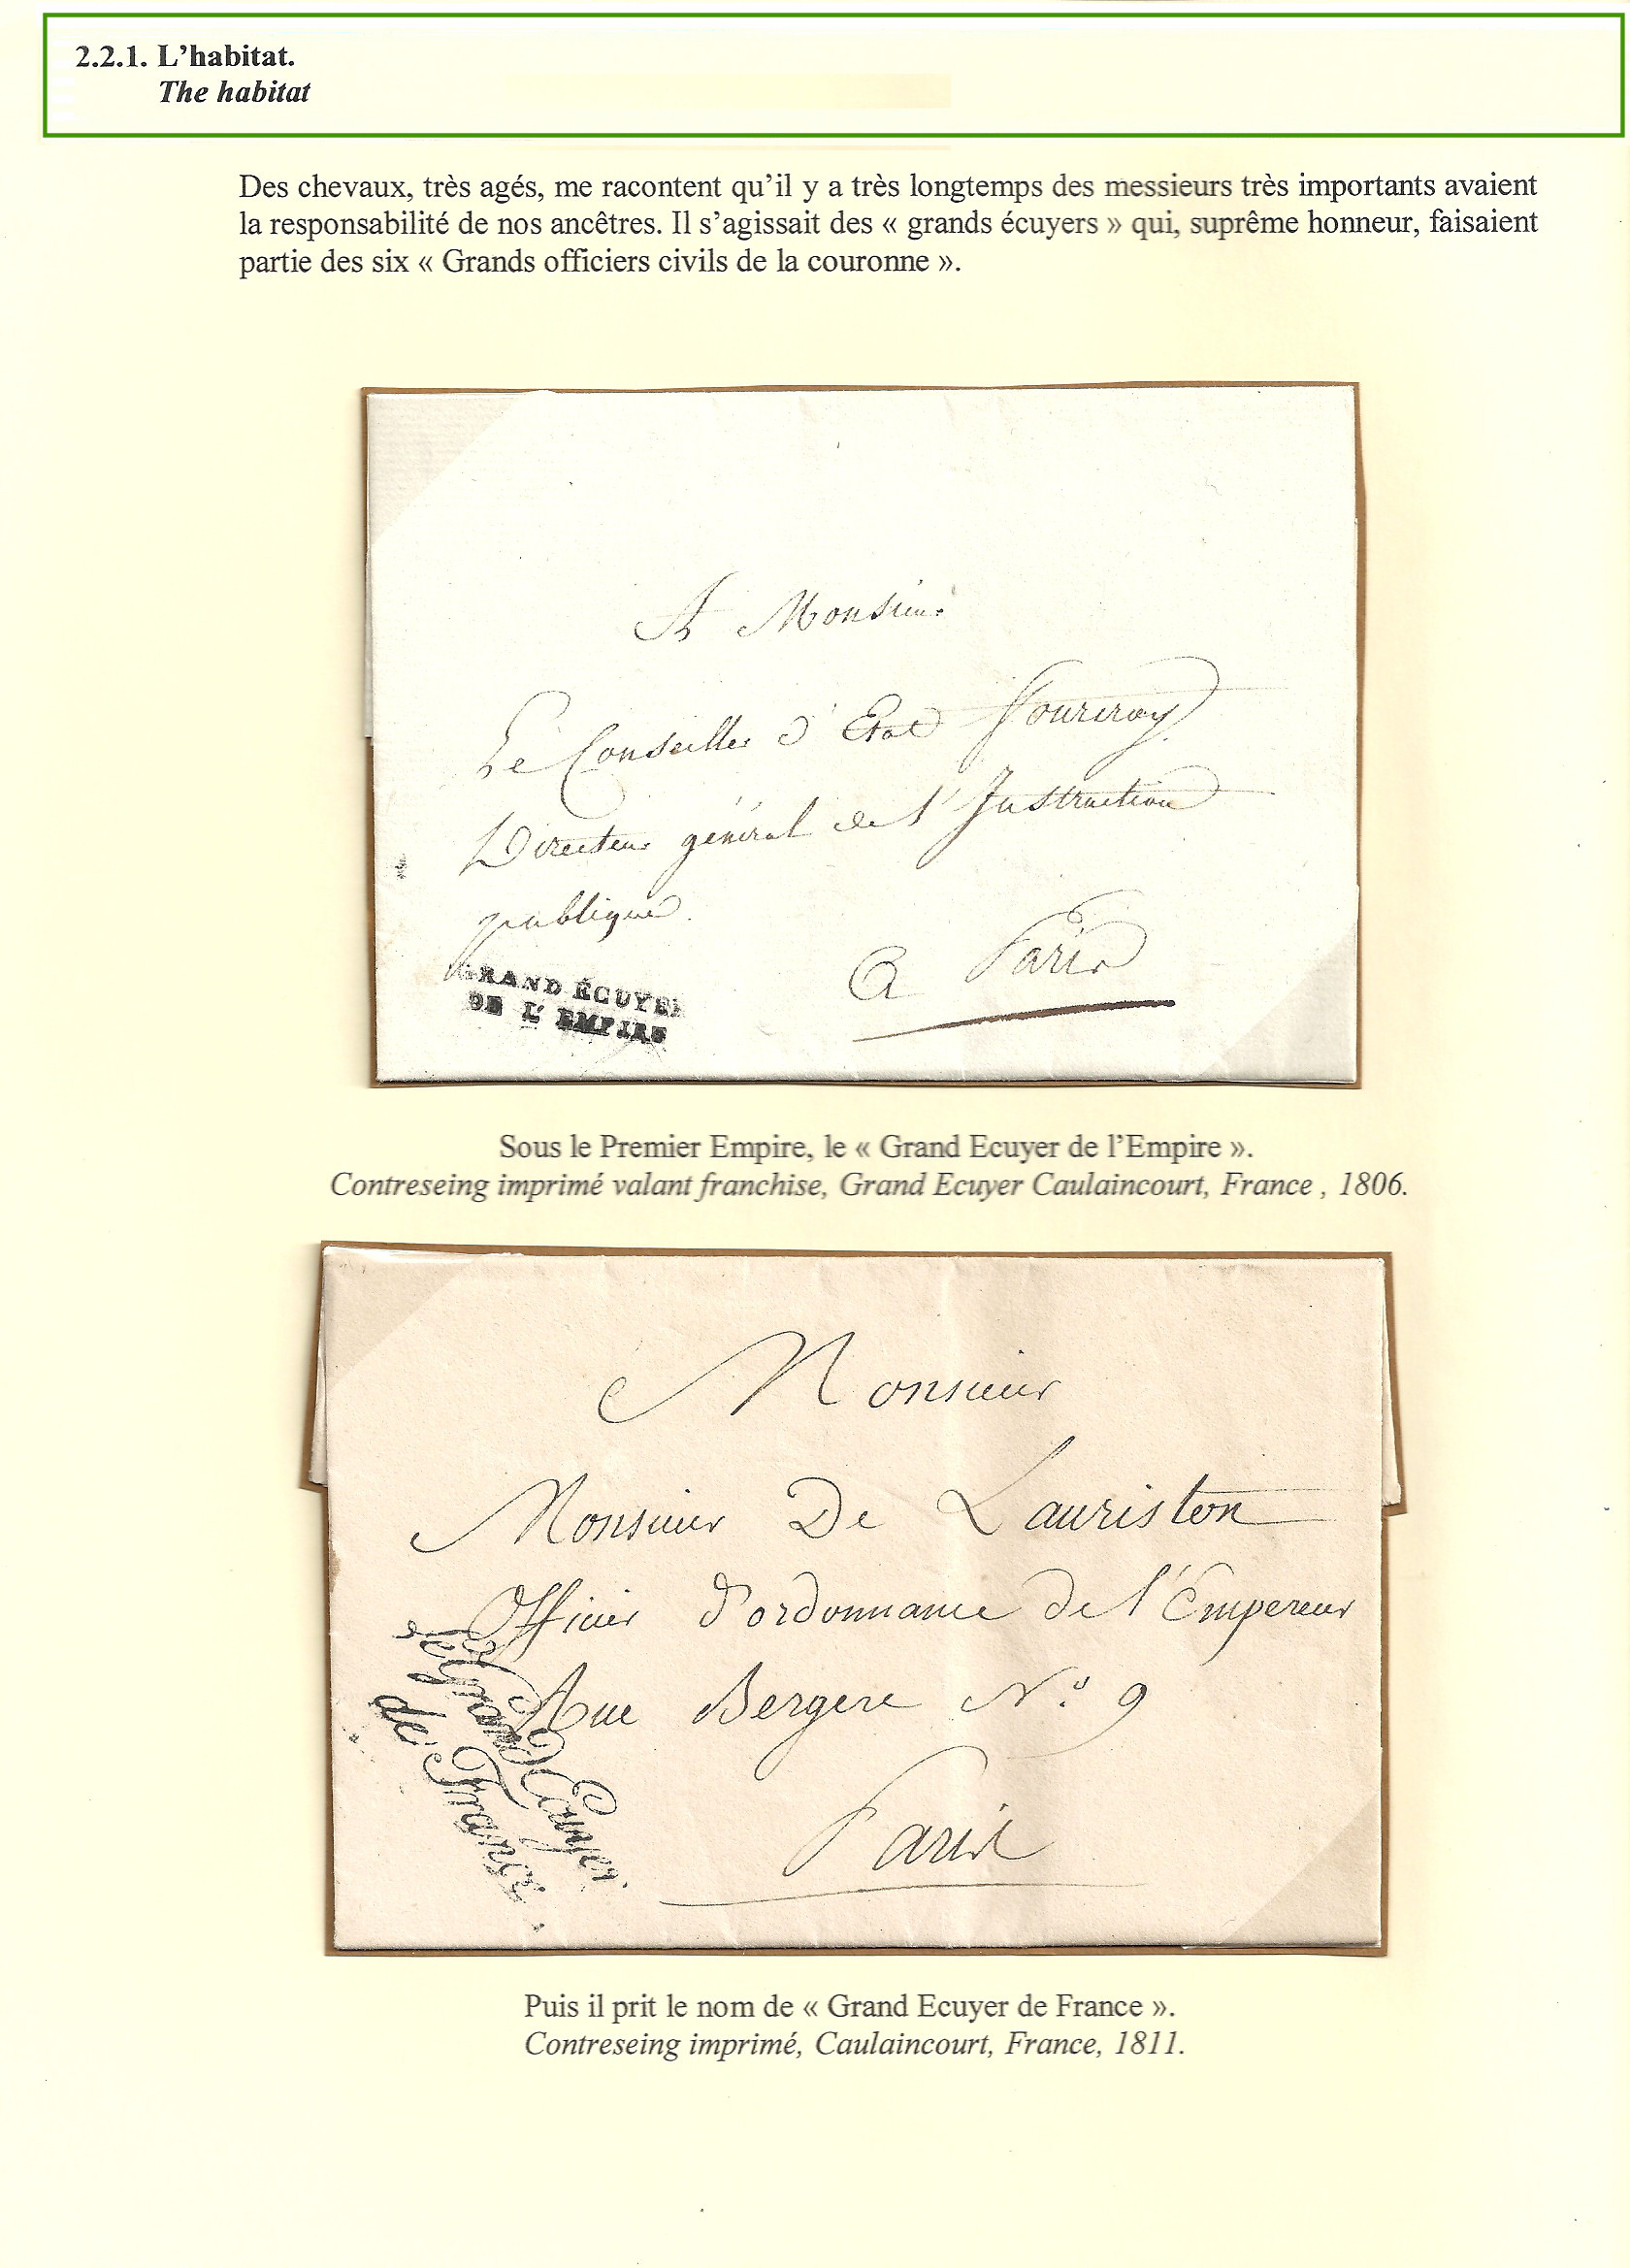 2.2.1. L’habitat.
The habitat
Des chevaux, très agés, me racontent qu’il y a très longtemps des messieurs très importants avaient
la responsabilité de nos ancêtres. Il s’agissait des « grands écuyers » qui, suprême honneur, faisaient
partie des six « Grands officiers civils de la couronne ».
A Monsieur
Le Conseiller d'Etat Fourcroy
Directeur général de l'Instruction
publique.
A Paris
GRAND ÉCUYER
DE L'EMPIRE
Sous le Premier Empire, le « Grand Ecuyer de l’Empire ».
Contreseing imprimé valant franchise, Grand Ecuyer Caulaincourt, France , 1806.
Monsieur
Monsieur De Lauriston
Officier d'ordonnance de l'Empereur
Rue Bergere N.º 9
Paris
le Grand Ecuyer
de France.
Puis il prit le nom de « Grand Ecuyer de France ».
Contreseing imprimé, Caulaincourt, France, 1811.